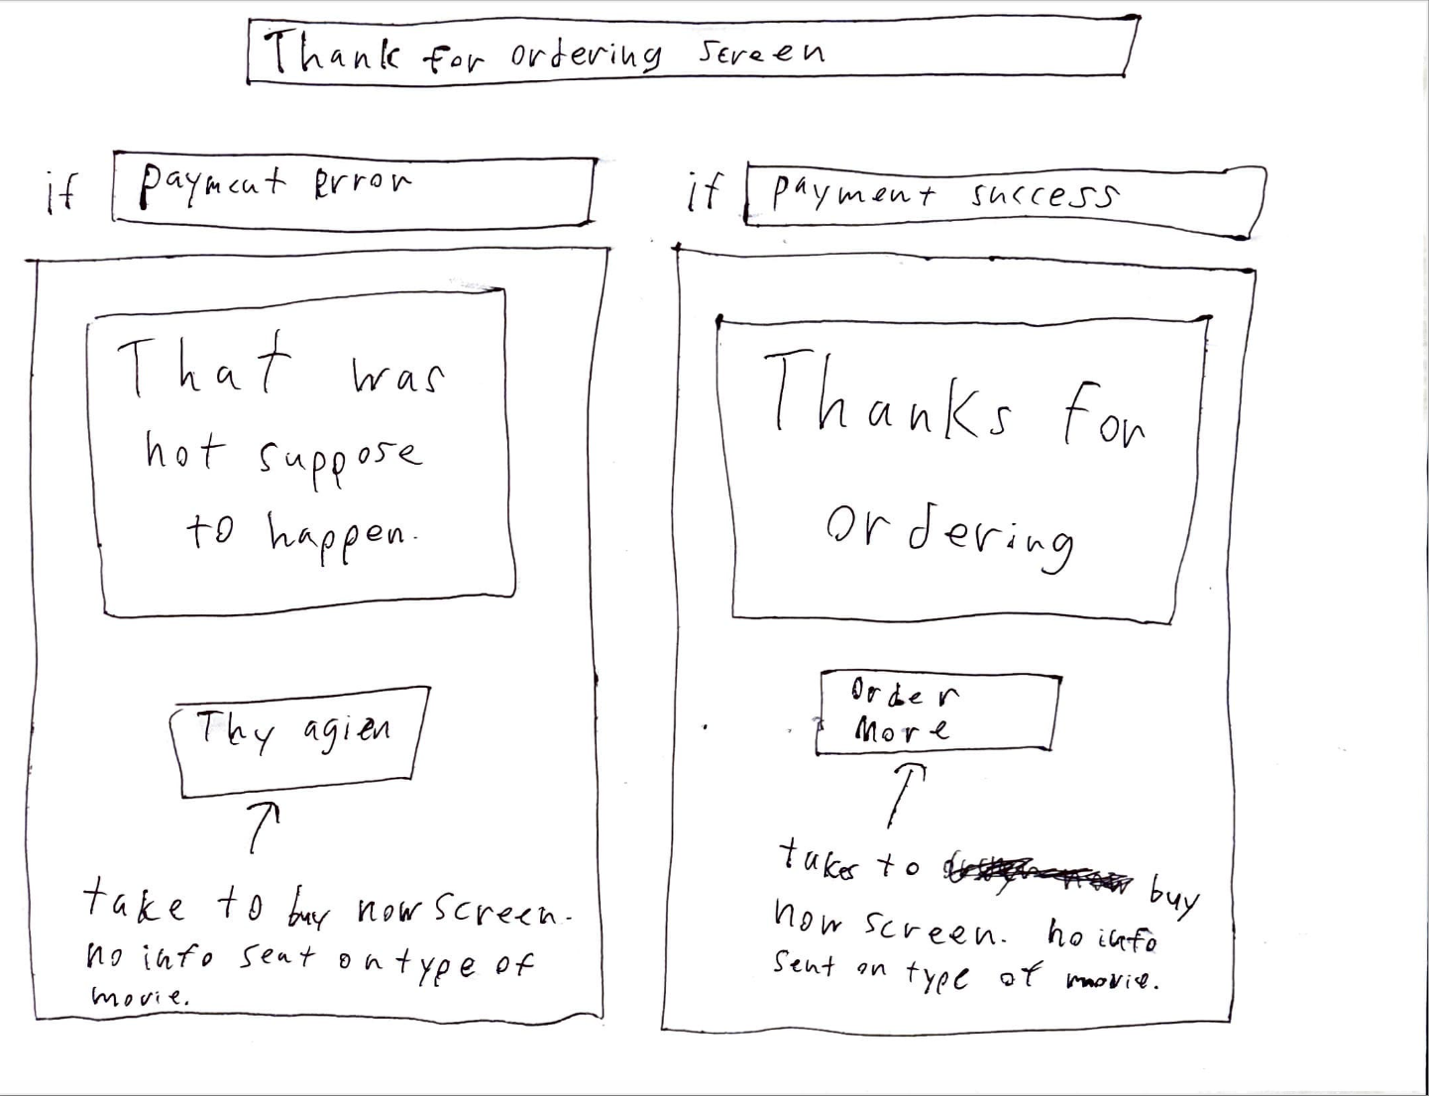 Thank for ordering screen
if payment error
That was
not suppose
to happen.
Thy agien
take to buy now screen.
no info sent on type of
movie.
if payment success
Thanks for
ordering
Order
More
takes to buy
now screen. no info
sent on type of movie.